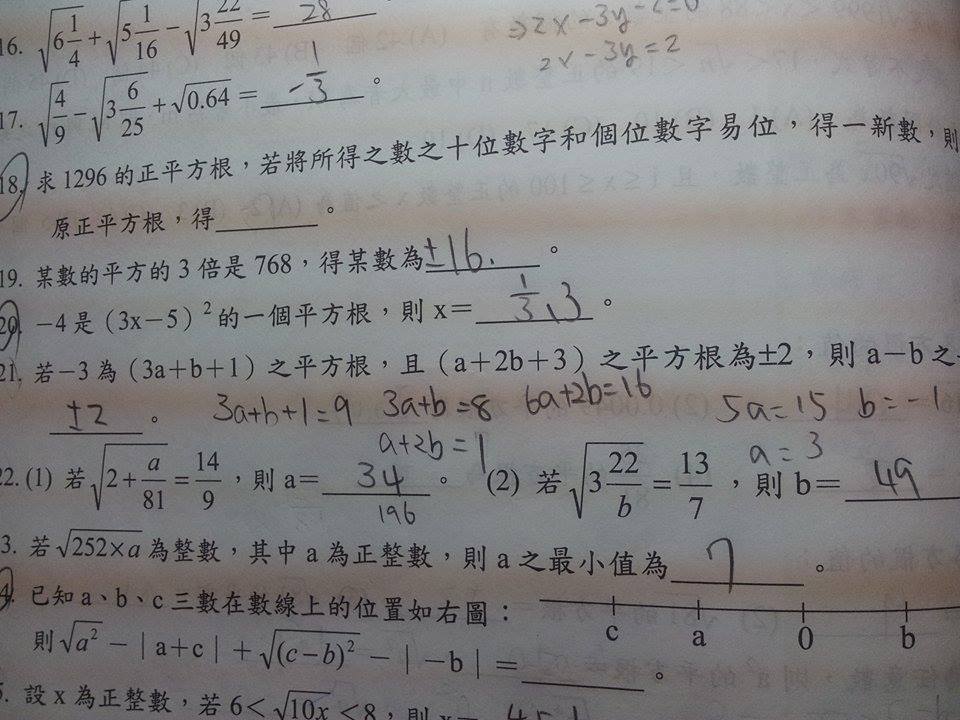 16. √(6 1/4) + √(5 1/16) − √(3 22/49) = 28
⇒2x−3y−2=0
2x−3y=2
17. √(4/9) − √(3 6/25) + √0.64 = −1/3 。
18. 求1296的正平方根，若將所得之數之十位數字和個位數字易位，得一新數，則
原正平方根，得______。
19. 某數的平方的3倍是768，得某數為±16. 。
20. −4是（3x−5）²的一個平方根，則x= 1/3、3 。
21. 若−3為（3a+b+1）之平方根，且（a+2b+3）之平方根為±2，則a−b之
±2 。 3a+b+1=9 3a+b=8 6a+2b=16 5a=15 b=−1
a+2b=1 a=3
22. (1) 若√(2+a/81) = 14/9，則a= 34 。 (2) 若√(3 22/b) = 13/7，則b= 49
196
3. 若√(252×a)為整數，其中a為正整數，則a之最小值為 7 。
4. 已知a、b、c三數在數線上的位置如右圖：
c a 0 b
則√(a²) − | a+c | + √((c−b)²) − | −b | =______。
5. 設x為正整數，若6<√(10x)<8，則x=